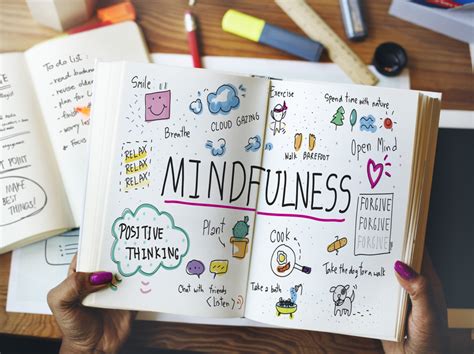 To do list:
- read
- revise older
- plan for
Smile
Breathe
CLOUD GAZING
Exercise
Spend time with nature
Walk BAREFOOT
Open Mind
RELAX
RELAX
RELAX
MINDFULNESS
FORGIVE
FORGIVE
FORGIVE
POSITIVE
THINKING
Plant
Cook
Chat with friends
(Listen)
Take a bath
Take the dog for a walk
POINT
MAKE
BEST
THINGS!